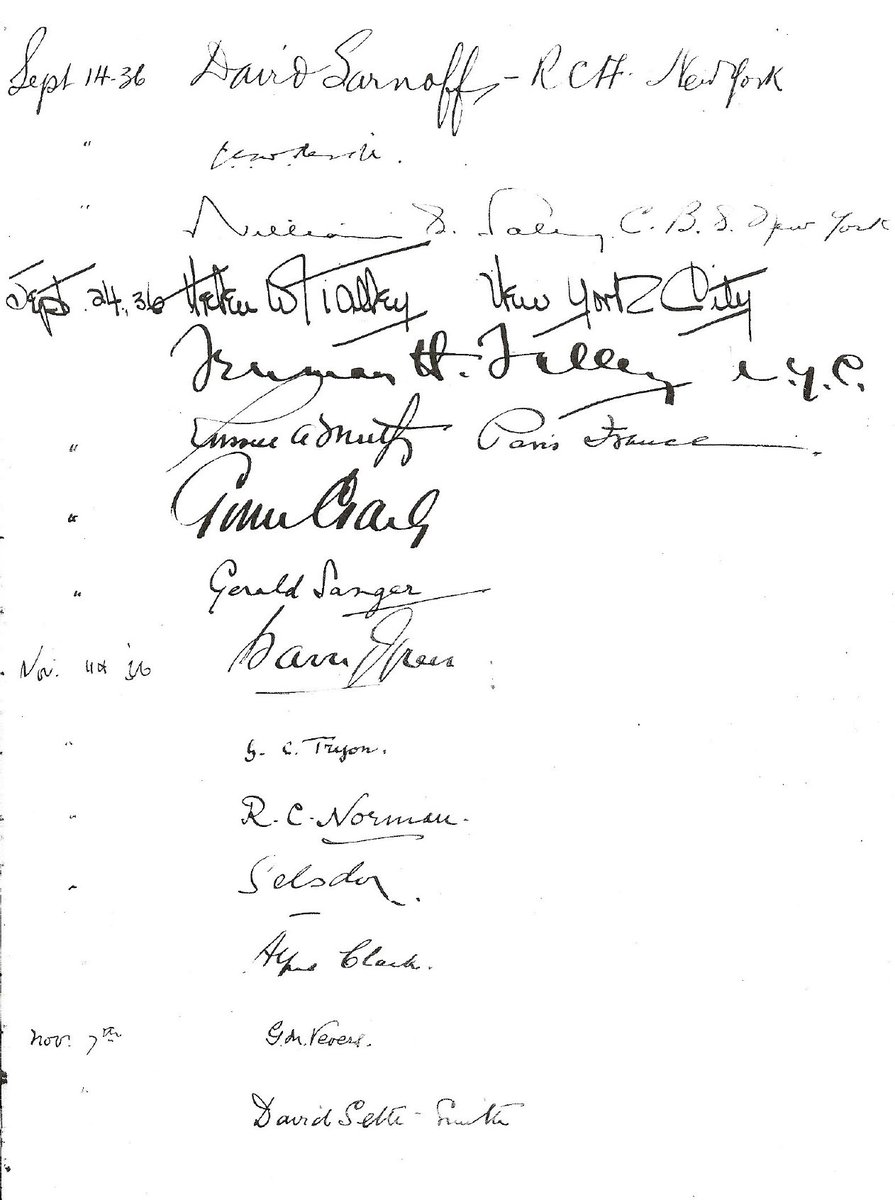 Sept 14-36 David Sarnoff - RCA. New York
"
" William S. Paley C. B. S. New York
Sept. 24. 36 Helen W Talley New York City
Truman H. Talley N.Y.C.
" Paris France
"
" Gerald Sanger
Nov. 4th '36
" G. C. Tryon.
" R. C. Norman.
" Selsdon.
Clark.
Nov. 7th G. M. Vevers.
" David Seth-Smith